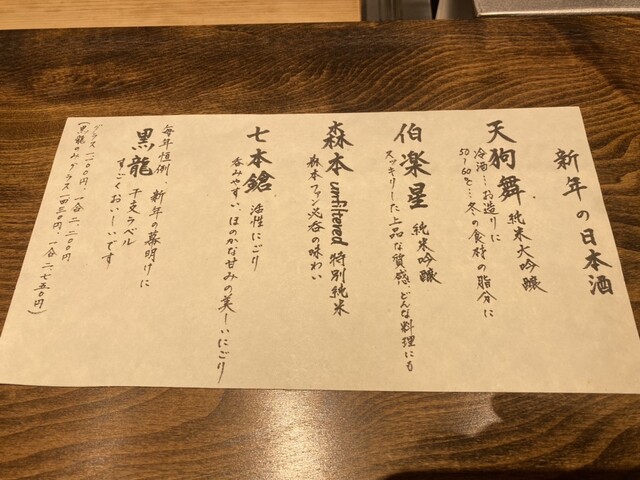 新年の日本酒
天狗舞 純米大吟醸
冷酒…お造りに
50~60℃…冬の食材の脂分に
伯楽星 純米吟醸
スッキリした上品な質感、どんな料理にも
森本 unfiltered 特別純米
森本ファン必呑の味わい
七本鎗 活性にごり
呑みやすい、ほのかな甘みの美しいにごり
毎年恒例 新年の幕明けに
黒龍 干支ラベル
すごくおいしいです
グラス一、一〇〇円、一合二、二〇〇円
(黒龍のみグラス一四三〇円、一合二、七五〇円)